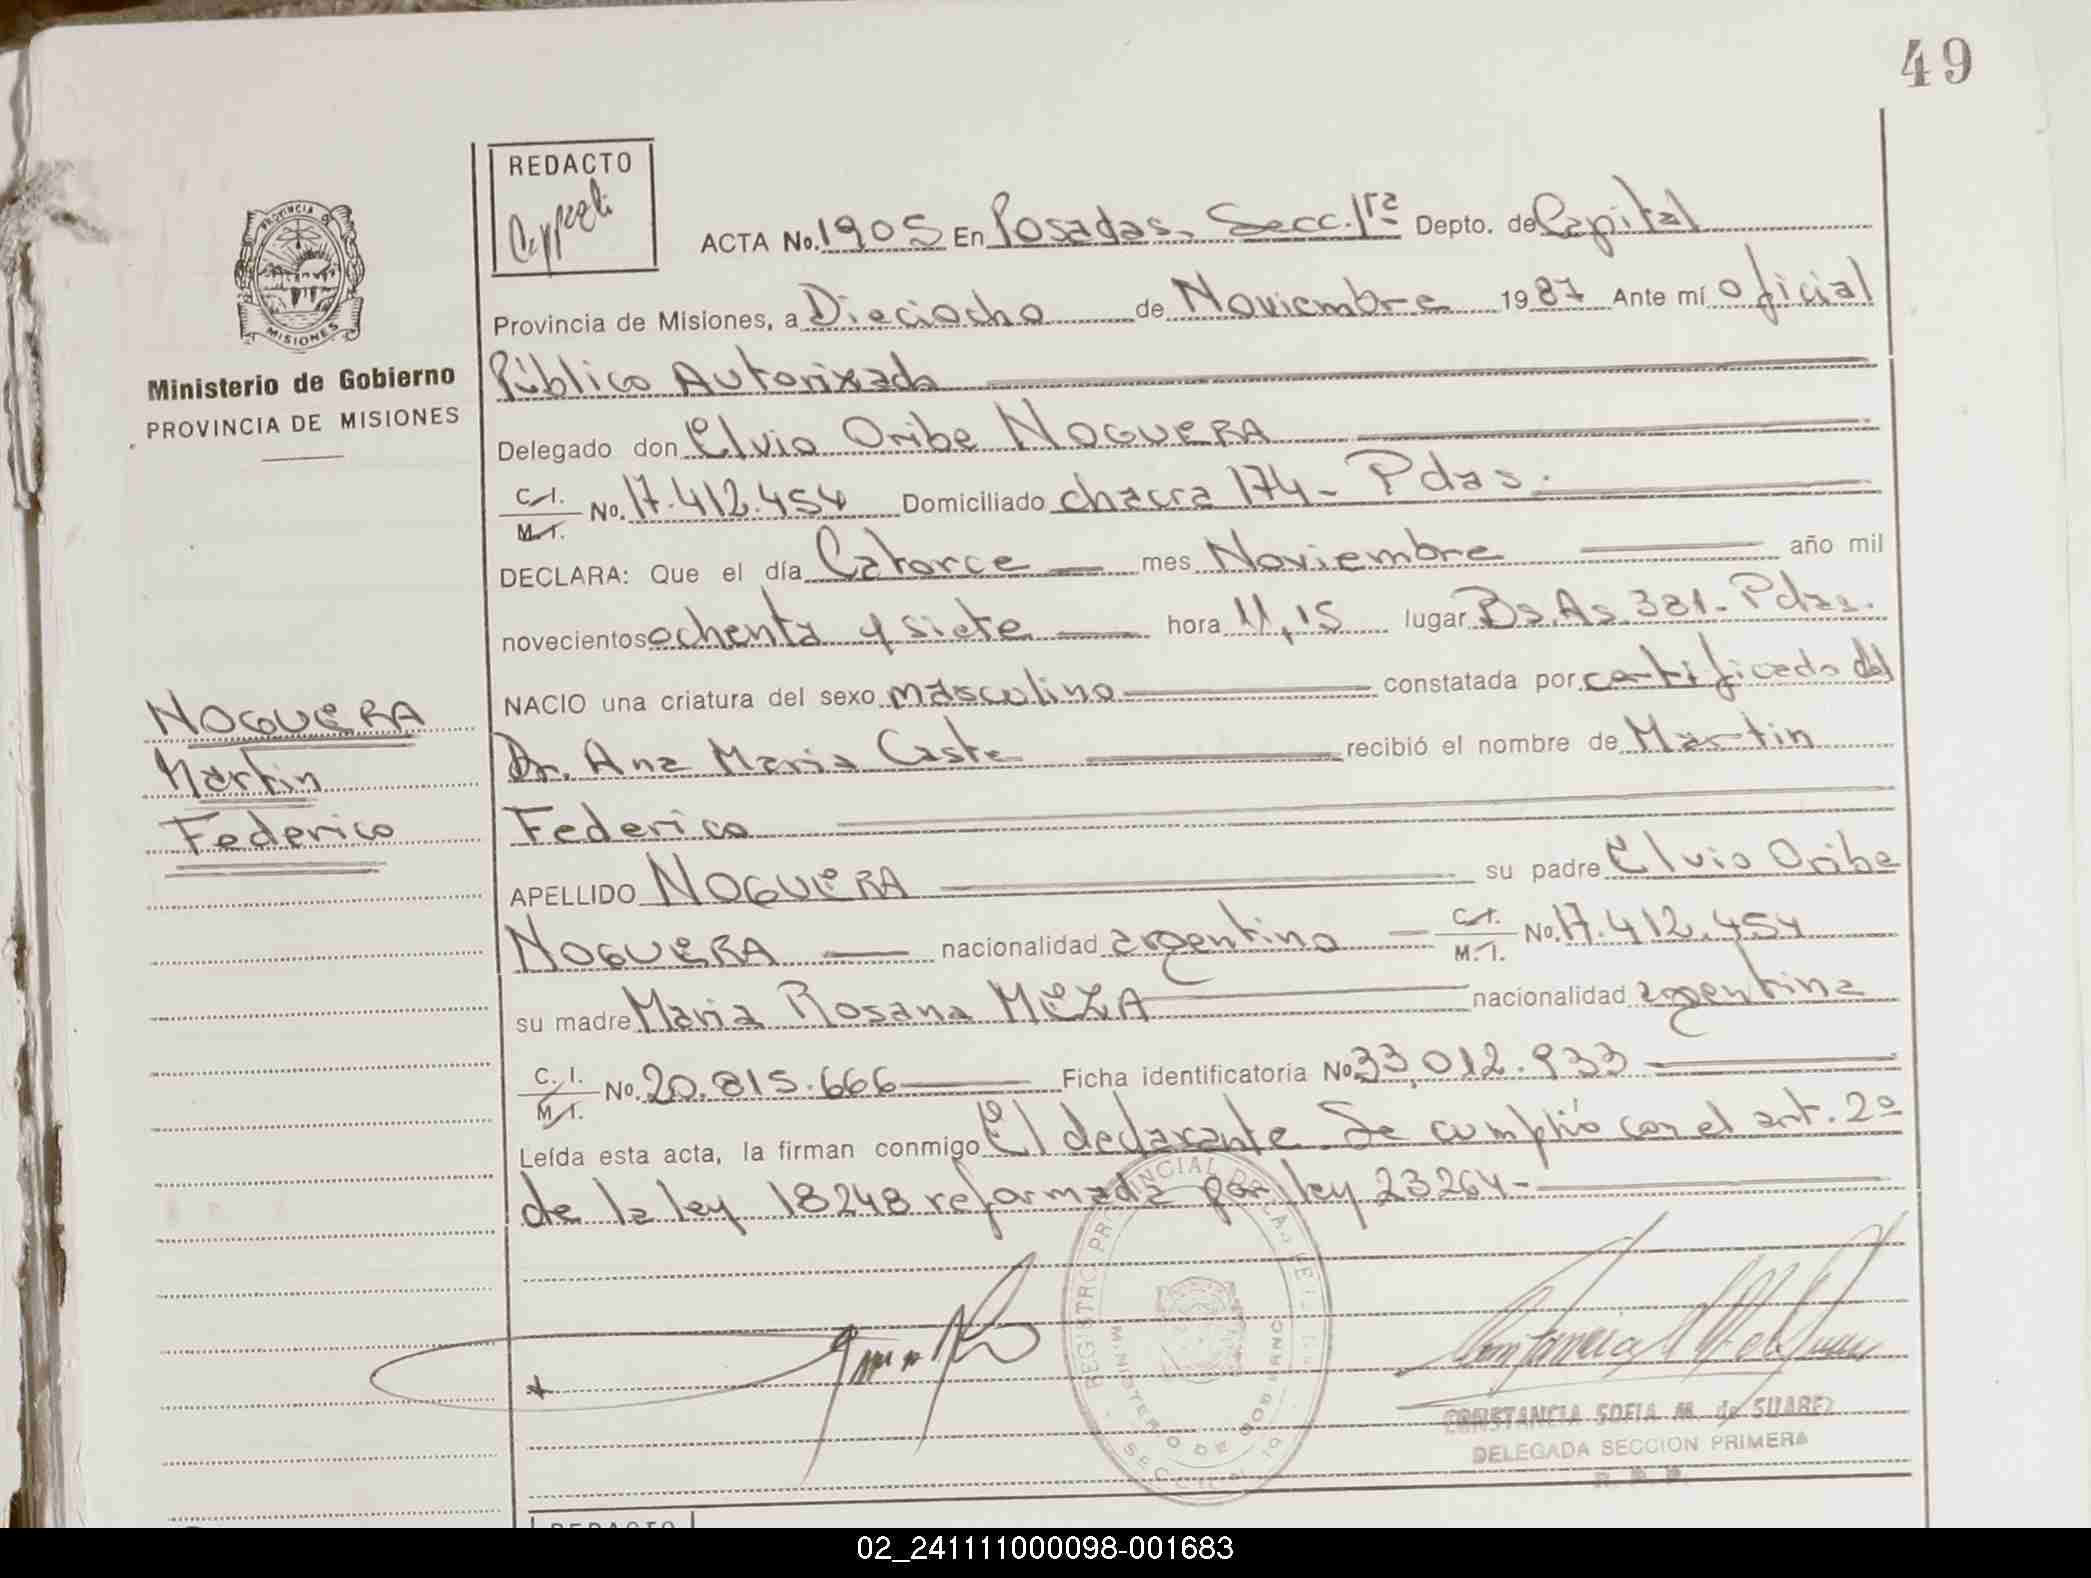 49
REDACTO
PROVINCIA DE
MISIONES
ACTA No. 1905 En Posadas, Secc. 1ra Depto. de Capital
Provincia de Misiones, a Dieciocho de Noviembre 1987 Ante mí oficial
Ministerio de Gobierno
PROVINCIA DE MISIONES
Público Autorizado
Delegado don Elvio Oribe NOGUERA
C.I. M.I. No. 17.412.454 Domiciliado chacra 174 - Pdas.
DECLARA: Que el día Catorce mes Noviembre año mil
novecientos ochenta y siete hora 11,15 lugar Bs. As. 381 - Pdas.
NACIO una criatura del sexo masculino constatada por certificado del
NOGUERA
Martin
Federico
Dr. Ana Maria Caste recibió el nombre de Martin
Federico
APELLIDO NOGUERA su padre Elvio Oribe
NOGUERA nacionalidad argentino C.I. M.I. No. 17.412.454
su madre Maria Rosana MEZA nacionalidad argentina
C.I. M.I. No. 20.815.666 Ficha identificatoria No 33.012.933
Leída esta acta, la firman conmigo El declarante Se cumplió con el art. 2º
de la ley 18248 reformada por ley 23264 -
REGISTRO PROVINCIAL DE LAS PE
MINISTERIO DE GOBIERNO
CONSTANCIA SOFIA M. de SUAREZ
DELEGADA SECCION PRIMERA
REDACTO
02_241111000098-001683